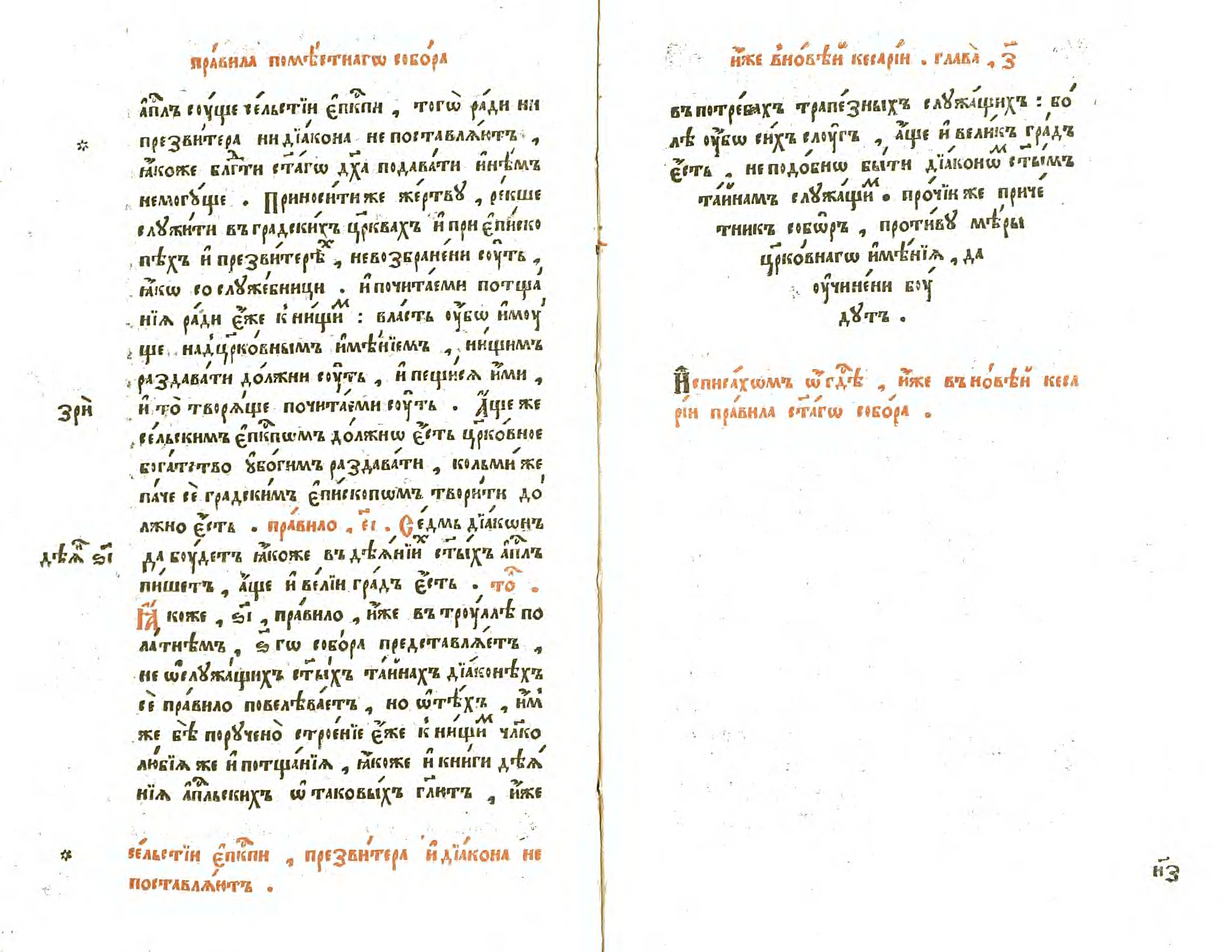 пра́вила помѣ́стнагѡ собо́ра
а҆пⷭ҇лъ соу́ще се́льстїи є҆пⷭ҇кпи , тогѡ̀ ра́ди ни
презви́тера ни дїа́кона не поставлѧ́ютъ ,
ꙗ҆́коже блгⷣти ст҃а́гѡ дх҃а подава́ти и҆нѣ́мъ
немогу́ще . Приноси́ти же же́ртву , ре́кше
слꙋжи́ти въ градски́хъ цр҃квахъ и҆ при є҆пи́ско
пѣхъ и҆ презви́терѣⷯ , невозбране́ни соу́ть ,
ꙗ҆́кѡ со слꙋже́бницы . и҆ почита́еми потща
нїѧ ра́ди є҆́же к ни́щиⷨ : вла́сть оу҆́бѡ и҆мꙋ́
ще над цр҃ко́вным и҆мѣ́нїемъ , ни́щимъ
раздава́ти до́лжни соу́ть , и҆ пещи́сѧ и҆́ми ,
и҆ то̀ творѧ́ще почита́еми соу́ть . А҆́ще же
зрѝ
се́льскимъ є҆пⷭ҇кпѡмъ до́лжнѡ є҆́сть цр҃ко́вное
бога́тство ᲂу҆бо́гимъ раздава́ти , кольми́ же
па́че сѐ градски́мъ є҆пи́скопѡмъ твори́ти до
лжно є҆́сть . пра́вило , є҃і . Се́дмь дїа́конъ
дѣѧ҇ ѕ҃і
да боу́детъ ꙗ҆́коже въ дѣѧ́нїиⷯ ст҃ы́хъ а҆пⷭ҇лъ
пи́шетъ , а҆́ще и҆ ве́лїи гра́дъ є҆́сть . то́ⷧ .
Ꙗ҆́коже , ѕ҃і , пра́вило , и҆́же въ троу́ллѣ по
ла́тнѣмъ , ѕ҃гѡ собо́ра представлѧ́етъ ,
не ѡ҆ слꙋжа́щихъ ст҃ы́хъ та́йнахъ дїа́конѣхъ
сѐ пра́вило повелѣва́етъ , но ѡ҆ тѣ́хъ , и҆́м
же бѣ̀ порꙋчено̀ строе́нїе є҆́же к ни́щиⷨ чл҃ко
лю́бїѧ же и҆ потща́нїѧ , ꙗ҆́коже и҆ кни́ги дѣѧ́
нїѧ а҆пⷭ҇льскихъ ѡ҆ таковы́хъ гл҃ютъ , и҆́же
* се́льстїи є҆пⷭ҇кпи , презви́тера и҆ дїа́кона не
поставлѧ́ютъ .
и҆́же в но́вѣй кесарі́и . глава̀ , з҃
въ потре́бахъ трапе́зныхъ слꙋжа́щихъ : бо́
лѣ оу҆́бѡ си́хъ слоу́гъ , а҆́ще и҆ вели́къ гра́дъ
є҆́сть , не подо́бнѡ бы́ти дїа́конѡⷨ ст҃ы́мъ
та́йнамъ слꙋжа́щиⷨ . про́чїи же приче́
тник собѡ́ръ , проти́вꙋ мѣ́ры
цр҃ко́внагѡ и҆мѣ́нїѧ , да
оу҆чине́ни боу́
дꙋтъ .
И҆списа́хѡмъ ѡ҆ гдⷭ҇ѣ , и҆́же въ но́вѣй кеса
рі́и пра́вила ст҃а́гѡ собо́ра .
н҃з